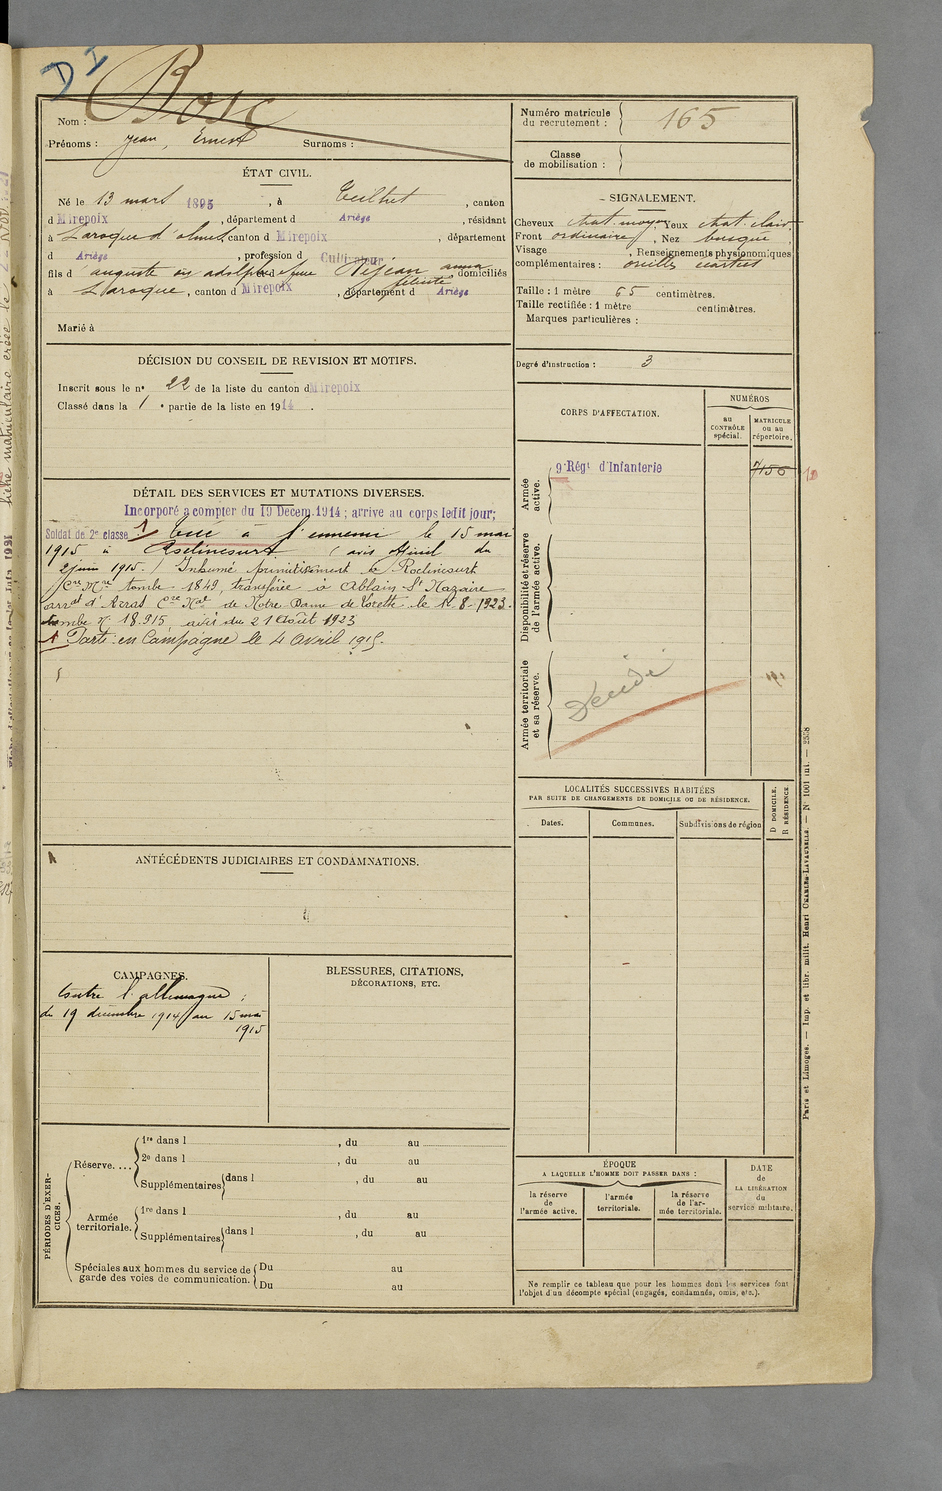 D I
Bosc
Nom :
Prénoms : Jean, Ernest Surnoms :
Numéro matricule
du recrutement : 165
Classe
de mobilisation :
ÉTAT CIVIL.
Né le 13 mars 1895, à Teilhet, canton
d Mirepoix, département d Ariège, résidant
à Laroque d'olmes, canton d Mirepoix, département
d Ariège, profession d Cultivateur
fils d auguste ou adolphe et de Dejean anna domiciliés
félicité
à Laroque, canton d Mirepoix, département d Ariège
Marié à
SIGNALEMENT.
Cheveux chat. moyen Yeux chat. clair
Front ordinaire, Nez busqué
Visage , Renseignements physionomiques
complémentaires : oreilles écartées
Taille : 1 mètre 65 centimètres.
Taille rectifiée : 1 mètre centimètres.
Marques particulières :
Degré d'instruction : 3
DÉCISION DU CONSEIL DE REVISION ET MOTIFS.
Inscrit sous le n° 22 de la liste du canton d Mirepoix
Classé dans la 1 e partie de la liste en 1914.
CORPS D'AFFECTATION.
NUMÉROS
au
CONTRÔLE
spécial.
MATRICULE
ou au
répertoire.
Armée
active.
9e Régt d'Infanterie
7156
Disponibilité et réserve
de l'armée active.
Armée territoriale
et sa réserve.
Décédé
DÉTAIL DES SERVICES ET MUTATIONS DIVERSES.
Incorporé a compter du 19 Decem. 1914; arrive au corps ledit jour;
Soldat de 2e classe 1) Tué à l'ennemi le 15 mai
1915 à Roclincourt (avis officiel du
2 juin 1915.) Inhumé primitivement à Roclincourt
Cre Mre tombe 1849, transférée à Ablain St Nazaire
arrt d'Arras Cre Nal de Notre Dame de Lorette le 12-8-1923.
tombe N° 18.915, avis du 21 Août 1923
1 Parti en Campagne le 4 avril 1915.
LOCALITÉS SUCCESSIVES HABITÉES
PAR SUITE DE CHANGEMENTS DE DOMICILE OU DE RÉSIDENCE.
Dates.
Communes.
Subdivisions de région
D DOMICILE.
R RÉSIDENCE
ANTÉCÉDENTS JUDICIAIRES ET CONDAMNATIONS.
CAMPAGNES.
Contre l'allemagne :
du 19 décembre 1914 au 15 mai
1915
BLESSURES, CITATIONS,
DÉCORATIONS, ETC.
PÉRIODES D'EXERCICES.
Réserve....
1re dans l , du au
2e dans l , du au
Supplémentaires dans l , du au
Armée
territoriale.
1re dans l , du au
Supplémentaires dans l , du au
Spéciales aux hommes du service de
garde des voies de communication.
Du au
Du au
ÉPOQUE
A LAQUELLE L'HOMME DOIT PASSER DANS :
la réserve
de
l'armée active.
l'armée
territoriale.
la réserve
de l'ar-
mée territoriale.
DATE
de
LA LIBÉRATION
du
service militaire.
Ne remplir ce tableau que pour les hommes dont les services font
l'objet d'un décompte spécial (engagés, condamnés, omis, etc.).
Paris et Limoges. — Imp. et libr. milit. Henri CHARLES-LAVAUZELLE. — N° 1001 int. — 2538